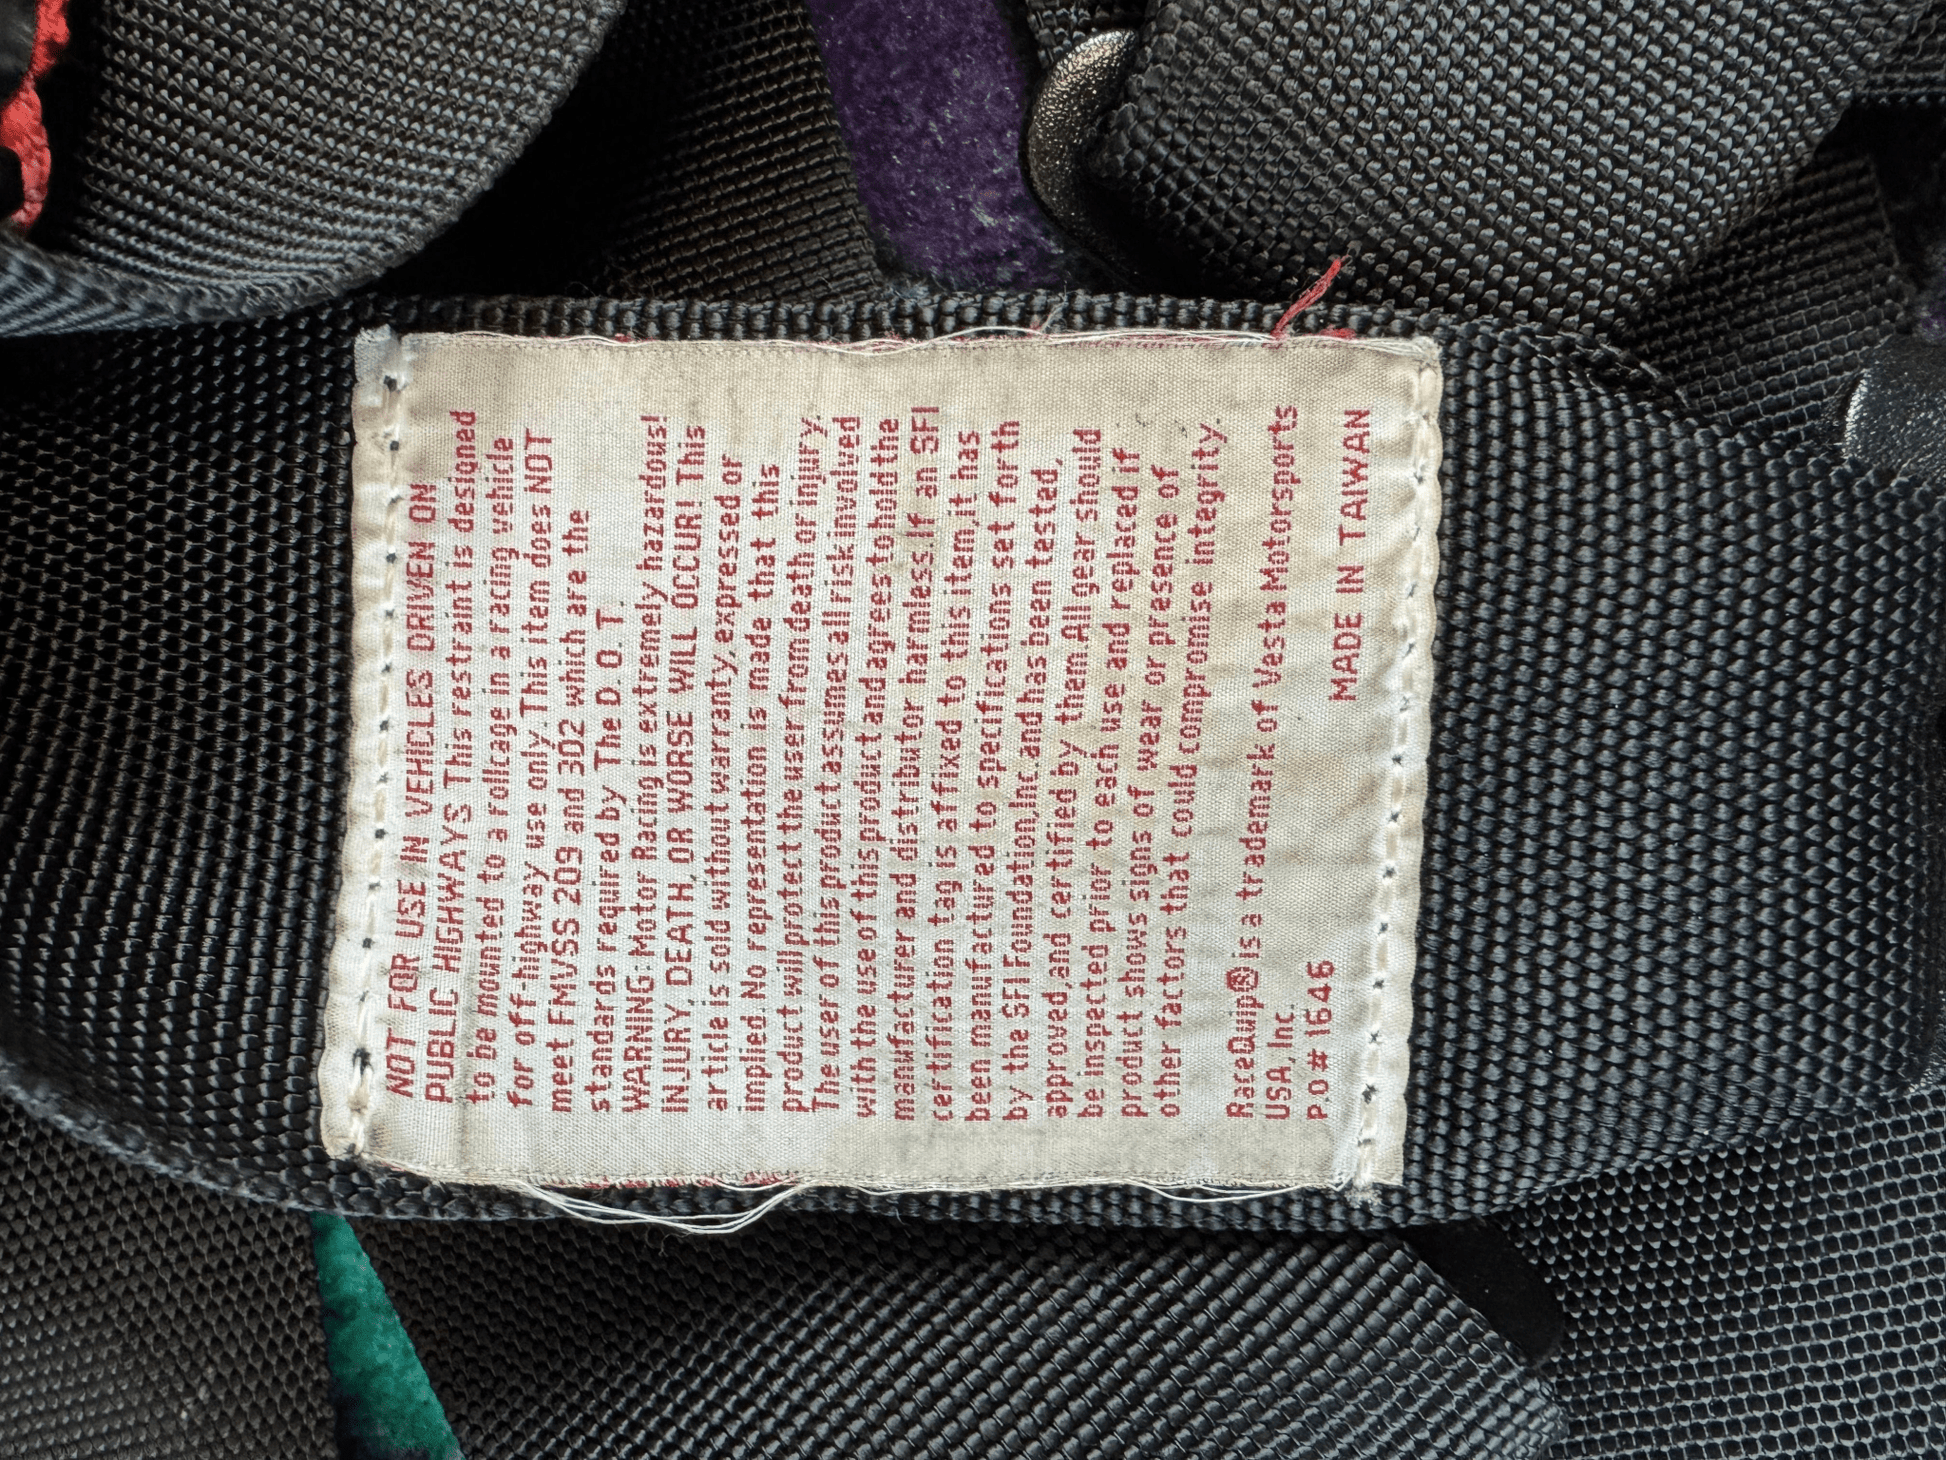 NOT FOR USE IN VEHICLES DRIVEN ON
PUBLIC HIGHWAYS This restraint is designed
to be mounted to a rollcage in a racing vehicle
for off-highway use only. This item does NOT
meet FMVSS 209 and 302 which are the
standards required by The D.O.T.
WARNING: Motor Racing is extremely hazardous!
INJURY, DEATH, OR WORSE WILL OCCUR! This
article is sold without warranty, expressed or
implied. No representation is made that this
product will protect the user from death or injury.
The user of this product assumes all risk involved
with the use of this product and agrees to hold the
manufacturer and distributor harmless. If an SFI
certification tag is affixed to this item, it has
been manufactured to specifications set forth
by the SFI Foundation, Inc. and has been tested,
approved, and certified by them. All gear should
be inspected prior to each use and replaced if
product shows signs of wear or presence of
other factors that could compromise integrity.
RaceQuip® is a trademark of Vesta Motorsports
USA, Inc. MADE IN TAIWAN
PO# 1646